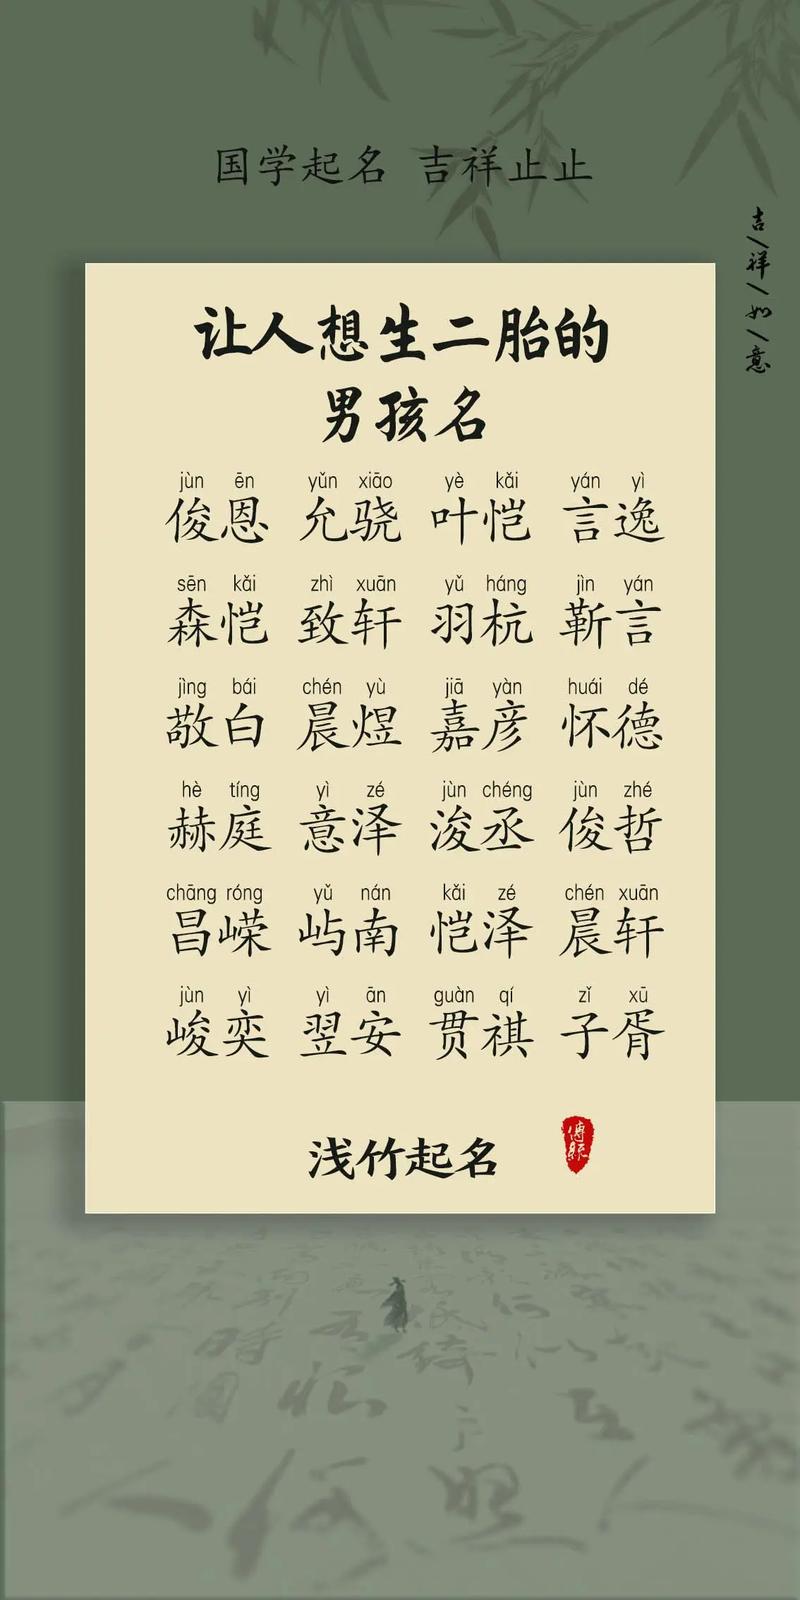 国学起名 吉祥止止
吉/祥/如/意
让人想生二胎的
男孩名
jùn ēn yǔn xiāo yè kǎi yán yì
俊恩 允骁 叶恺 言逸
sēn kǎi zhì xuān yǔ háng jìn yán
森恺 致轩 羽杭 靳言
jìng bái chén yù jiā yàn huái dé
敬白 晨煜 嘉彦 怀德
hè tíng yì zé jùn chéng jùn zhé
赫庭 意泽 浚丞 俊哲
chāng róng yǔ nán kǎi zé chén xuān
昌嵘 屿南 恺泽 晨轩
jùn yì yì ān guàn qí zǐ xū
峻奕 翌安 贯祺 子胥
浅竹起名
傳統